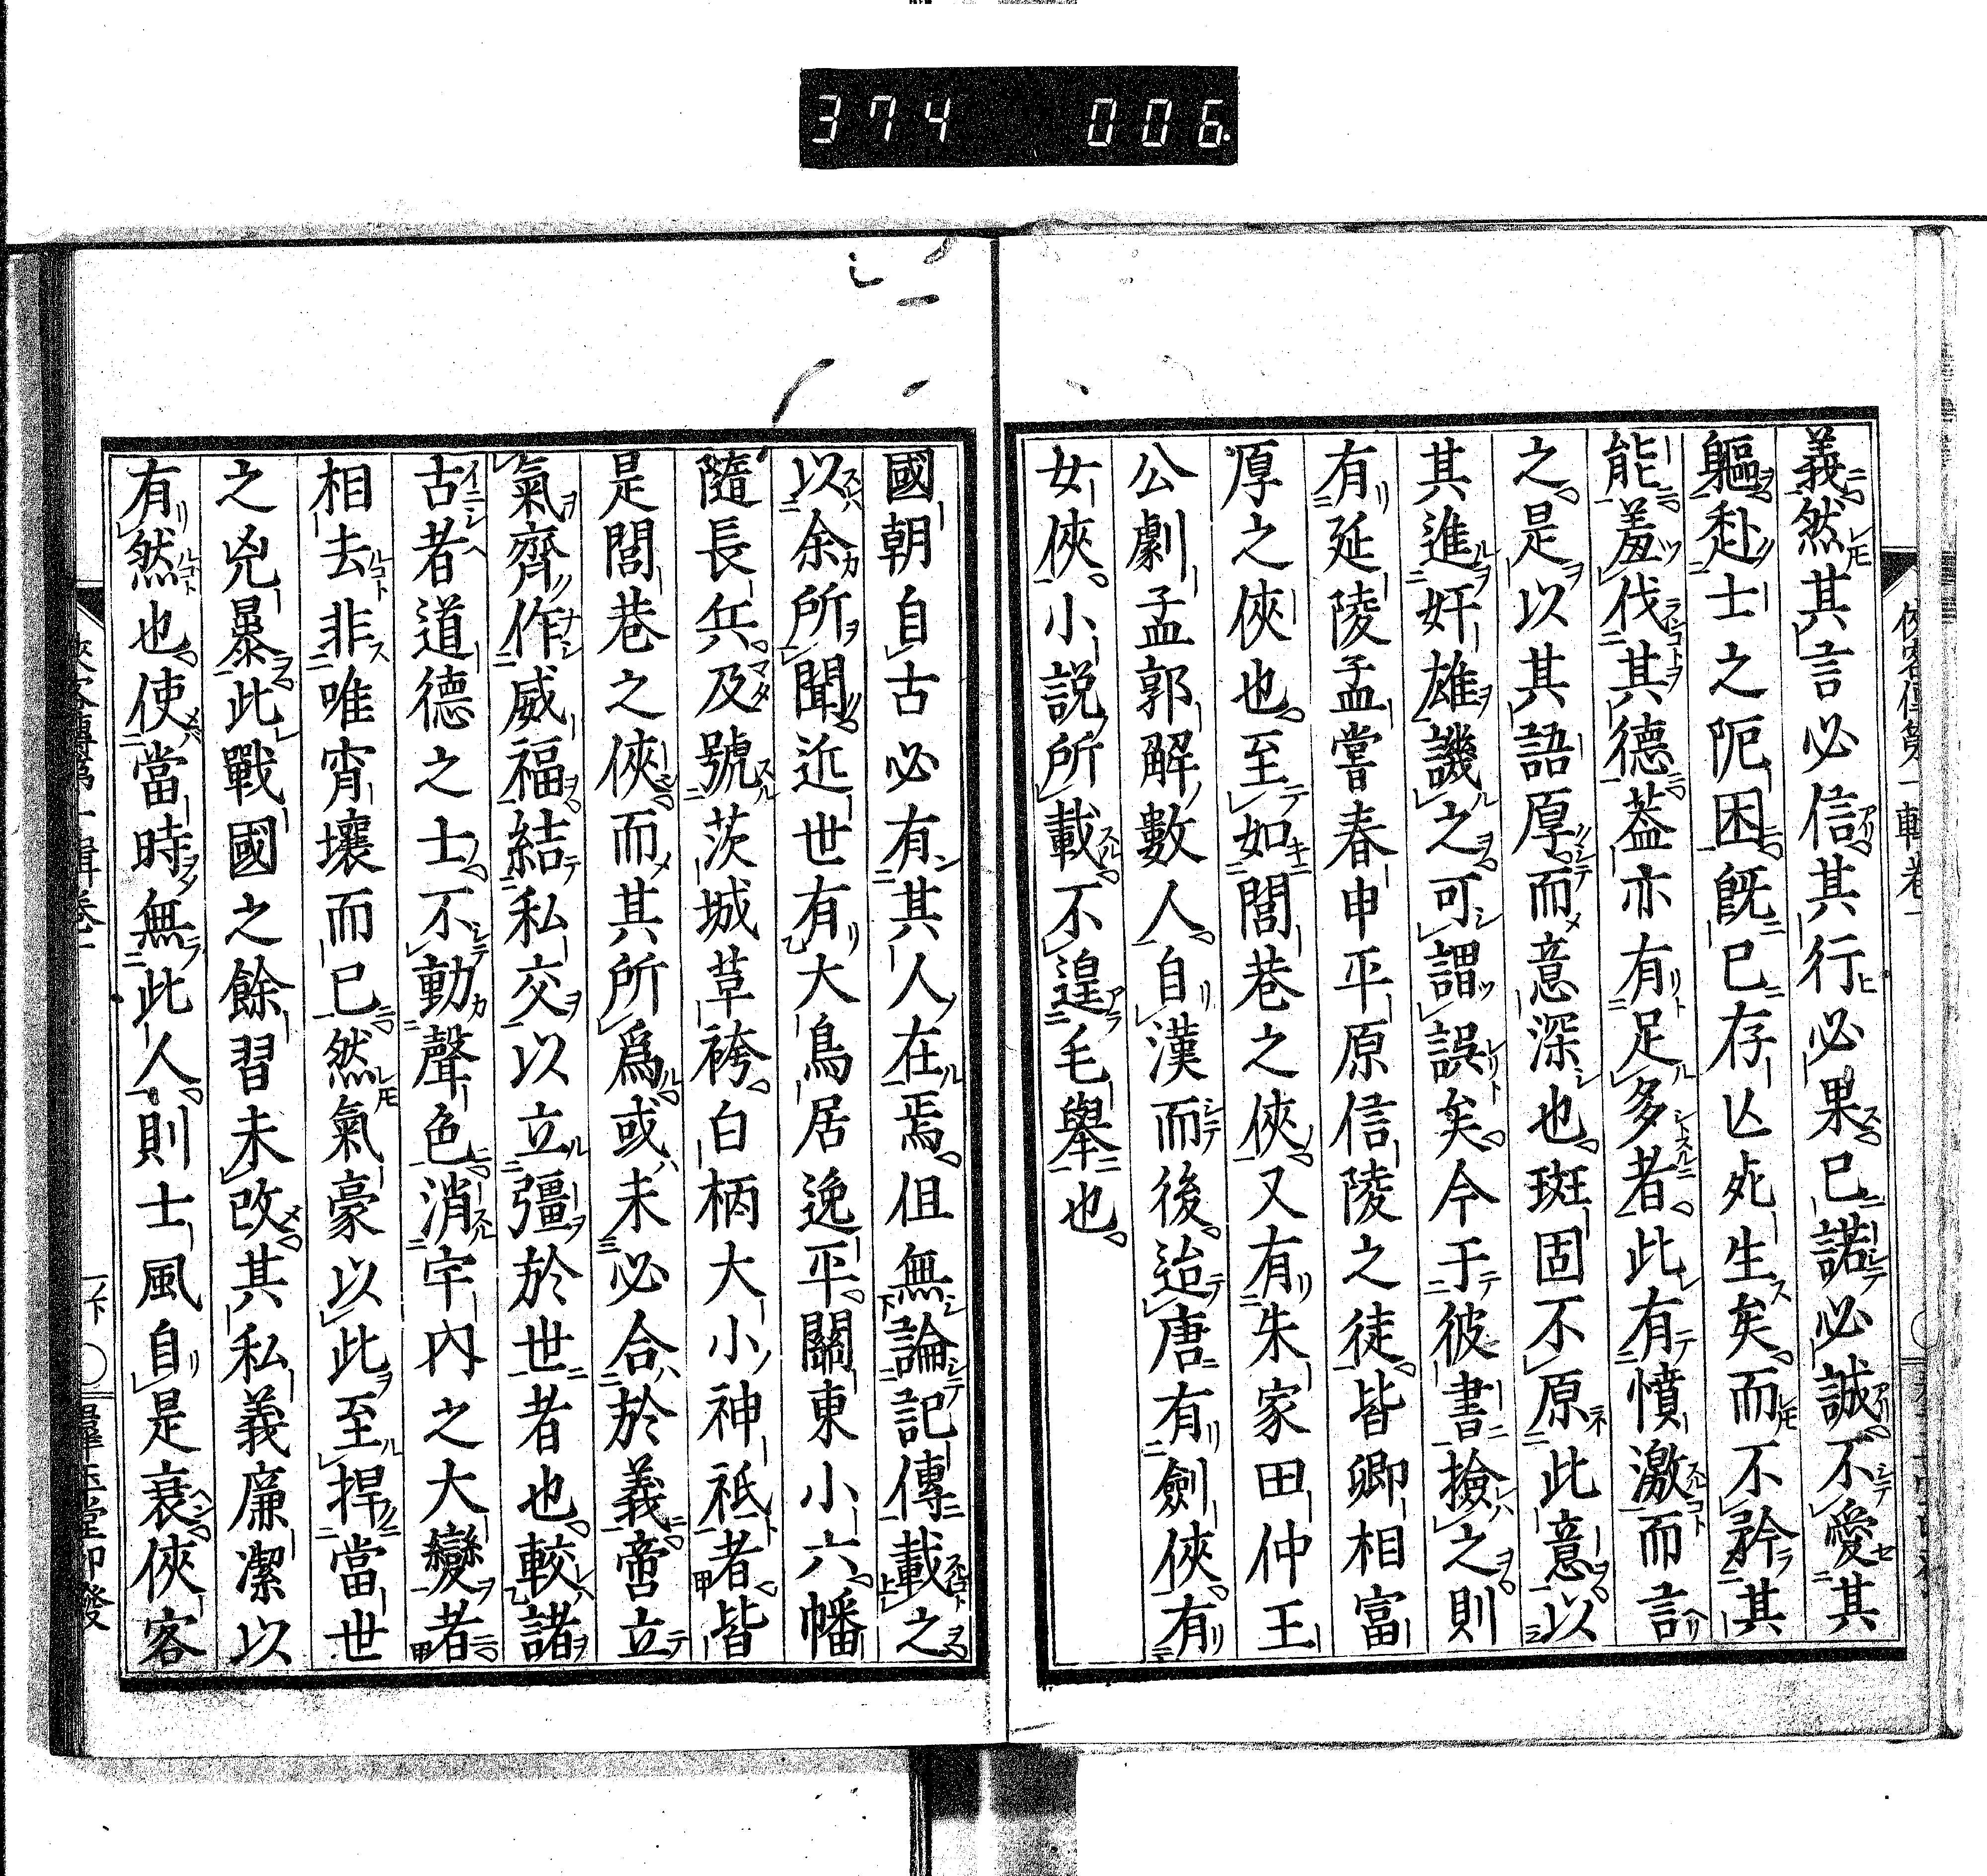 374 006
義然其言必信其行必果已諾必誠不愛其
軀赴士之阨困既已存亡死生矣而不矜其
能羞伐其德葢亦有足多者此有憤激而言
之是以其語厚而意深也斑固不原此意以
其進奸雄譏之可謂誤矣今于彼書撿之則
有延陵孟嘗春申平原信陵之徒皆卿相富
厚之俠也至如閭巷之俠又有朱家田仲王
公劇孟郭解數人自漢而後迨唐有劍俠有
女俠小説所載不遑毛擧也
國朝自古必有其人在焉但無論記傳載之
以余所聞近世有大鳥居逸平關東小六幡
隨長兵及號茨城草袴白柄大小神祇者皆
是閭巷之俠而其所爲或未必合於義啻立
氣齊作威福結私交以立彊於世者也較諸
古者道德之士不動聲色消宇内之大變者
相去非唯宵壤而已然氣豪以此至捍當世
之兇暴此戰國之餘習未改其私義廉潔以
有然也使當時無此人則士風自是衰俠客